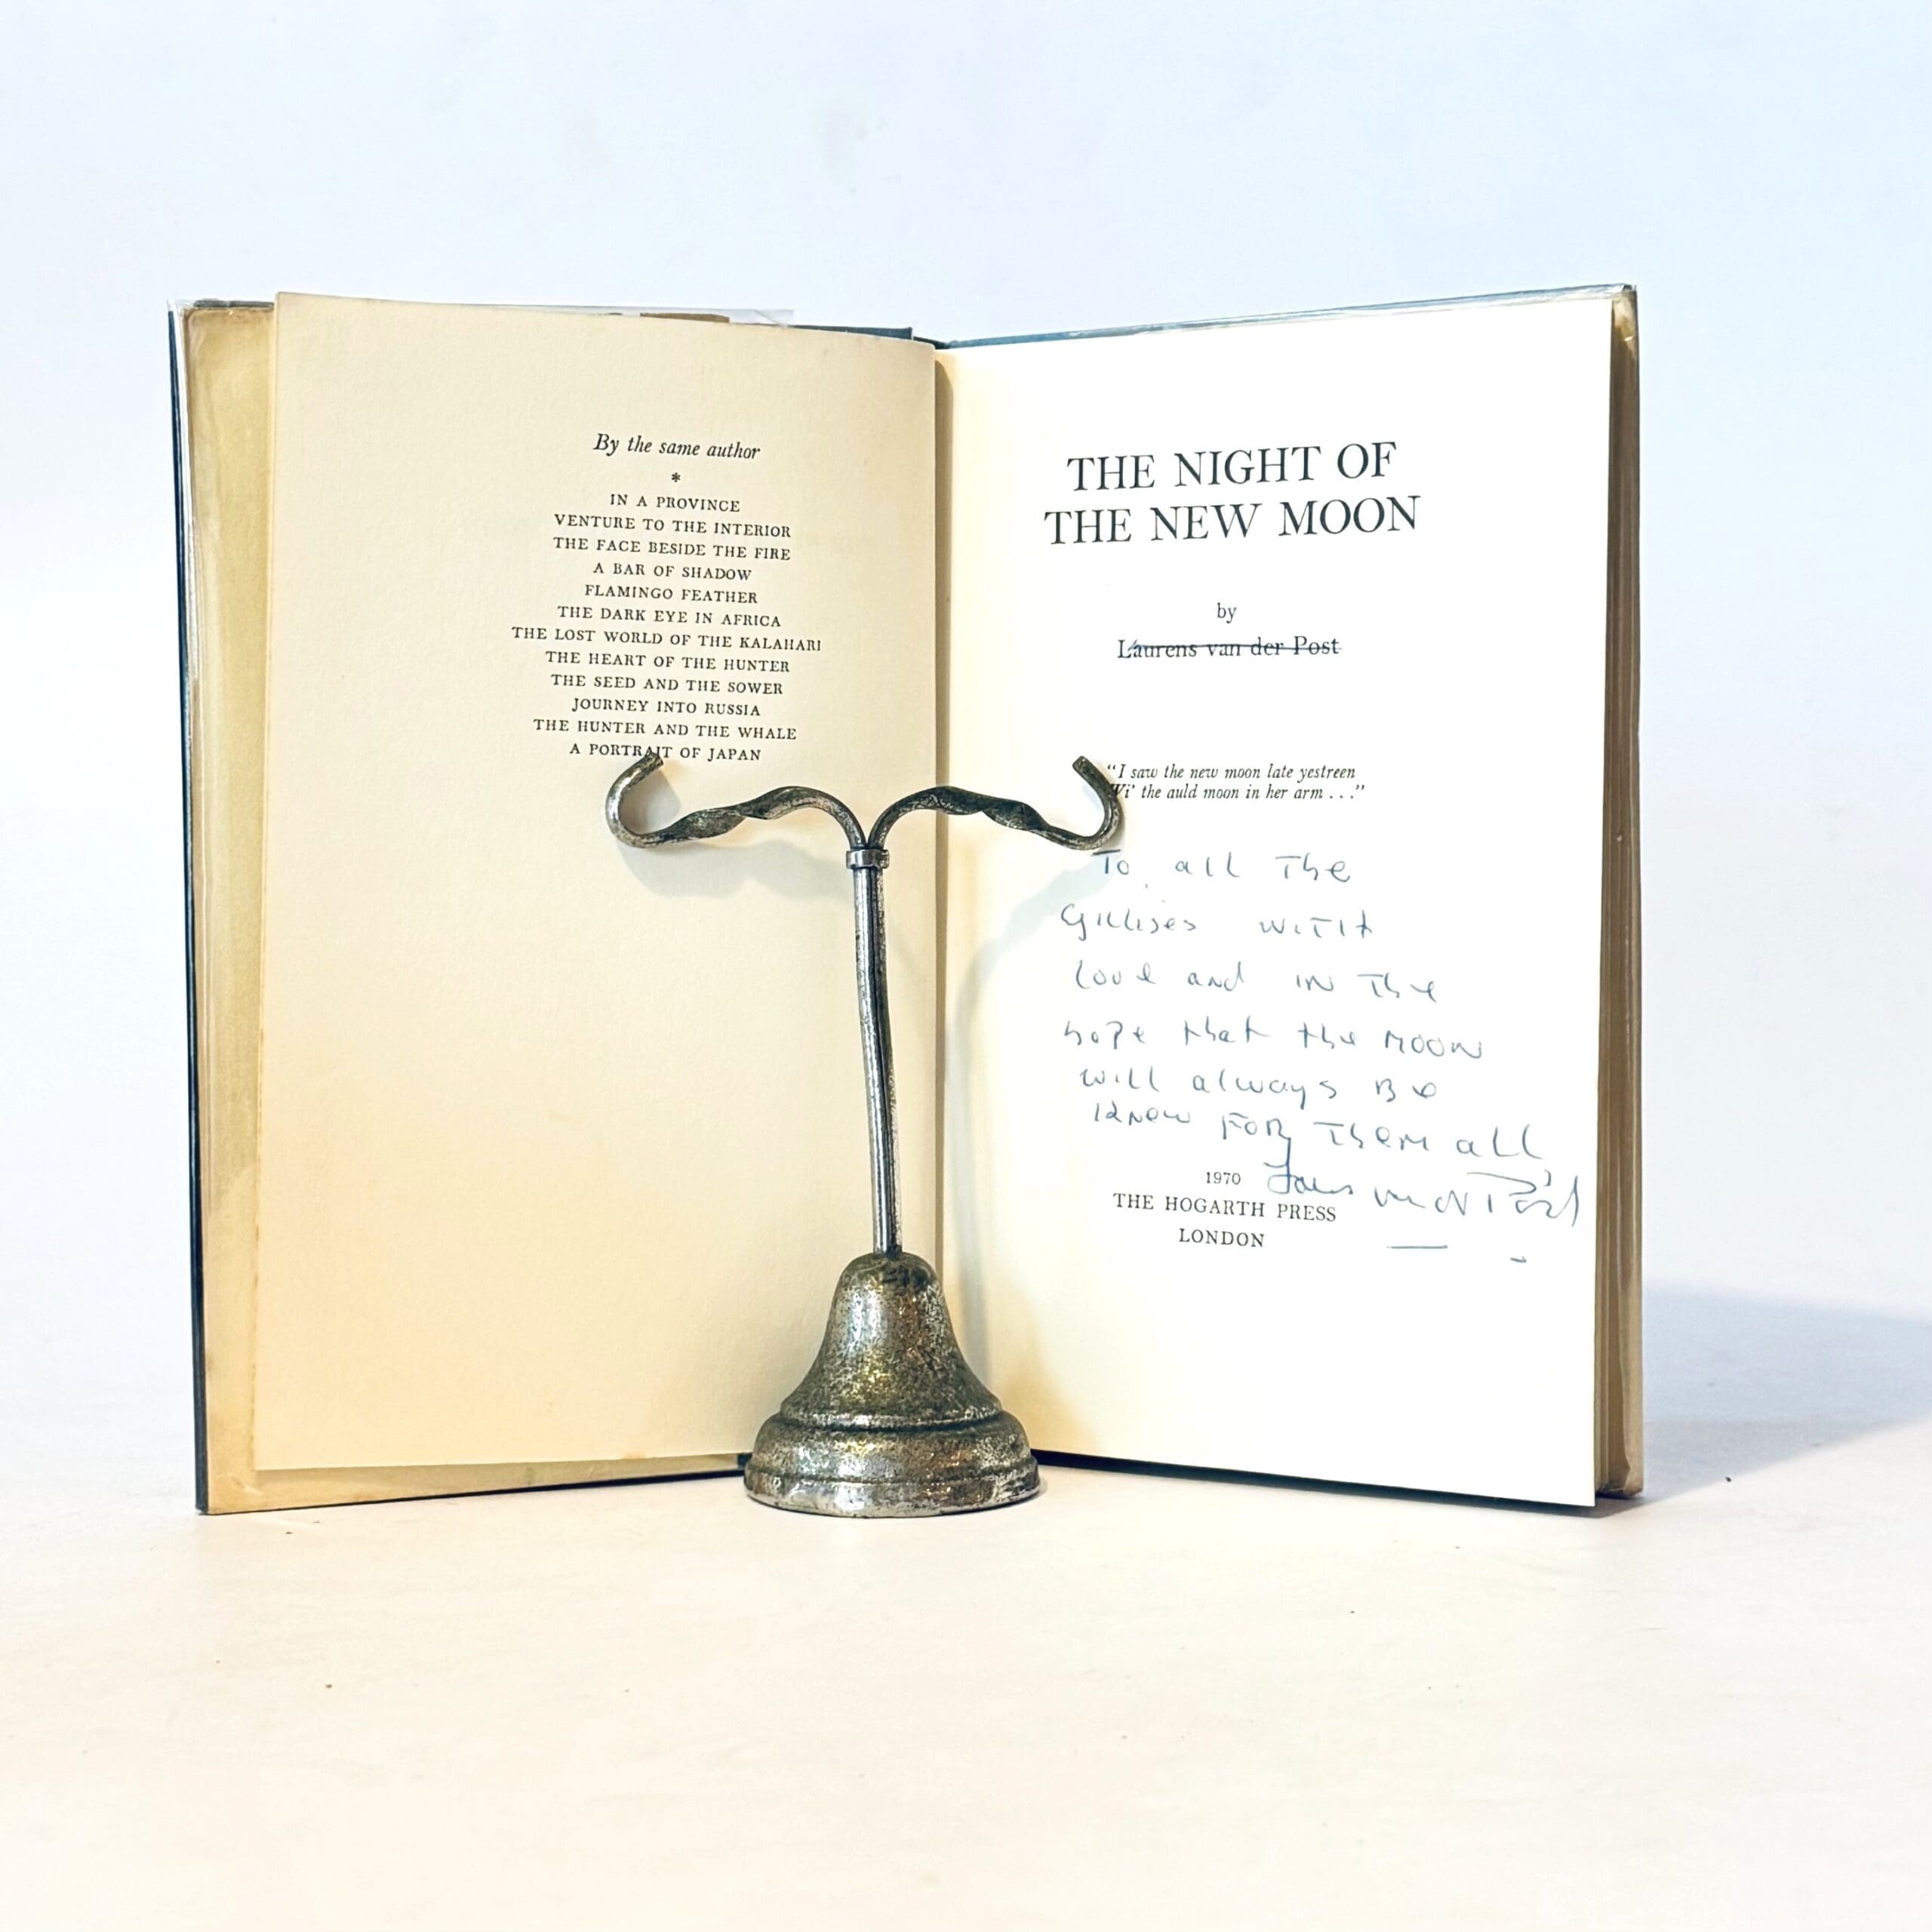 By the same author
*
IN A PROVINCE
VENTURE TO THE INTERIOR
THE FACE BESIDE THE FIRE
A BAR OF SHADOW
FLAMINGO FEATHER
THE DARK EYE IN AFRICA
THE LOST WORLD OF THE KALAHARI
THE HEART OF THE HUNTER
THE SEED AND THE SOWER
JOURNEY INTO RUSSIA
THE HUNTER AND THE WHALE
A PORTRAIT OF JAPAN
THE NIGHT OF
THE NEW MOON
by
Laurens van der Post
"I saw the new moon late yestreen
Wi' the auld moon in her arm . . ."
To all The
Gillises WITH
love and IN The
hope that the MOON
will always Be
new FOR Them all
1970
THE HOGARTH PRESS
LONDON